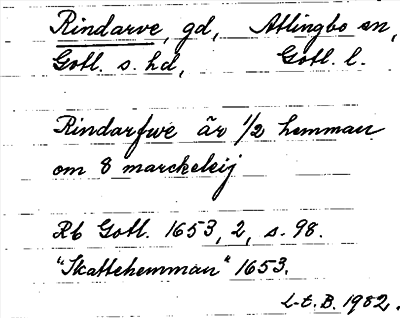 Rindarve, gd, Atlingbo sn,
Gotl. s. hd, Gotl. l.
Rindarfwe är 1/2 hemman
om 8 marckeleij
Rb Gotl. 1653, 2, s. 98.
"Skattehemman" 1653.
L-t. B. 1982.